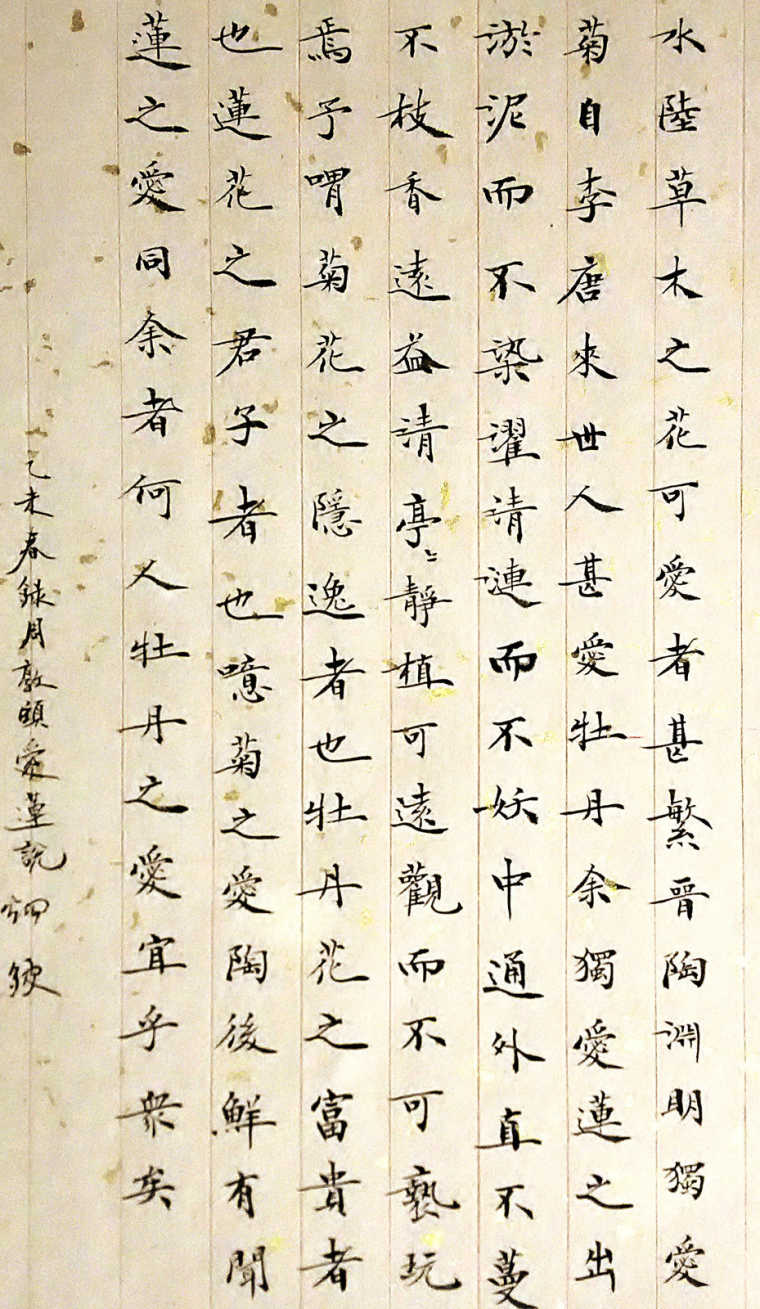 水陸草木之花可愛者甚繁晉陶淵明獨愛
菊自李唐來世人甚愛牡丹余獨愛蓮之出
淤泥而不染濯清漣而不妖中通外直不蔓
不枝香遠益清亭〻靜植可遠觀而不可褻玩
焉予謂菊花之隱逸者也牡丹花之富貴者
也蓮花之君子者也噫菊之愛陶後鮮有聞
蓮之愛同余者何人牡丹之愛宜乎衆矣
乙未春錄周敦頤愛蓮說